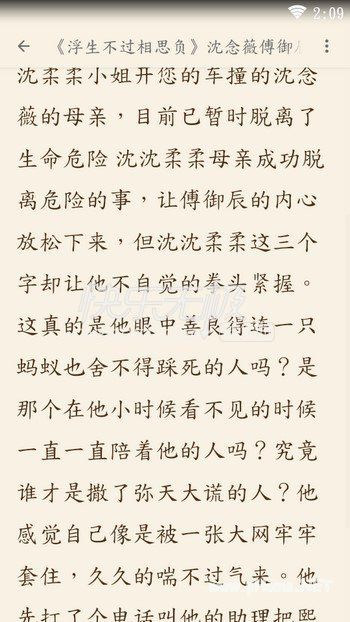 2:09
《浮生不过相思负》沈念薇傅御
沈柔柔小姐开您的车撞的沈念
薇的母亲，目前已暂时脱离了
生命危险 沈沈柔柔母亲成功脱
离危险的事，让傅御辰的内心
放松下来，但沈沈柔柔这三个
字却让他不自觉的拳头紧握。
这真的是他眼中善良得连一只
蚂蚁也舍不得踩死的人吗？是
那个在他小时候看不见的时候
一直一直陪着他的人吗？究竟
谁才是撒了弥天大谎的人？他
感觉自己像是被一张大网牢牢
套住，久久的喘不过气来。他
先打了个电话叫他的助理把熙